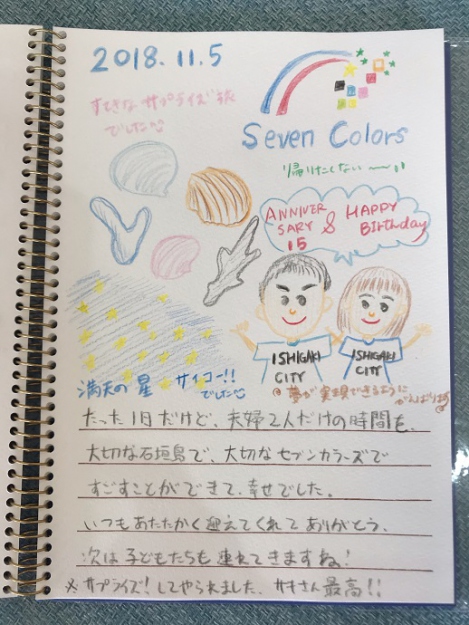 2018.11.5
すてきな サプライズ 旅
でした
Seven Colors
帰りたくない～
ANNIVER
SARY & HAPPY
15 Birthday
ISHIGAKI
CITY
ISHIGAKI
CITY
満天の星 サイコー!!
でした
夢が実現できるように
がんばります
たった1日だけど、夫婦2人だけの時間を、
大切な石垣島で、大切なセブンカラーズで
すごすことができて、幸せでした。
いつもあたたかく迎えてくれてありがとう、
次は子どもたちも連れてきますね!
※サプライズ!してやられました、サキさん最高!!